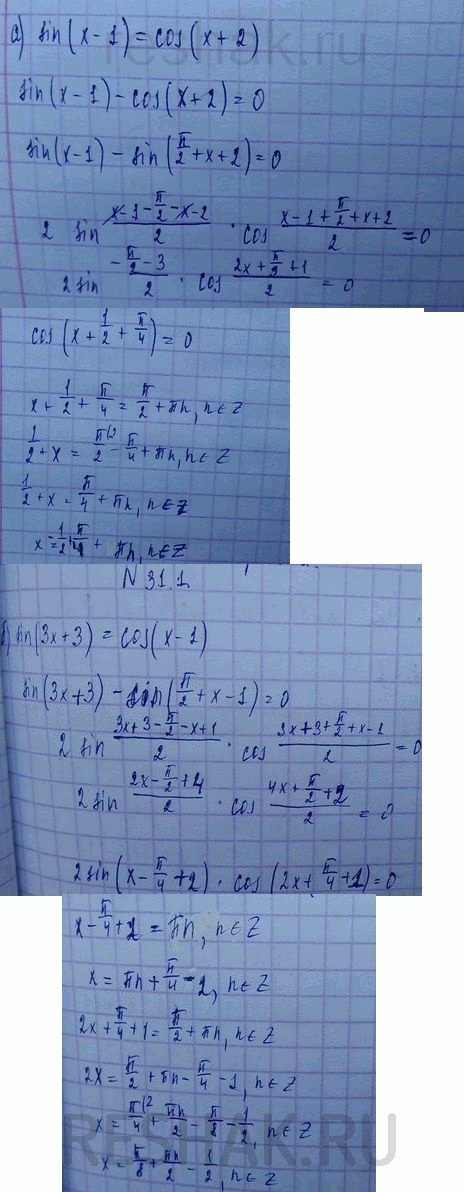 а) sin(x-1) = cos(x+2)
sin(x-1) - cos(x+2) = 0
sin(x-1) - sin(π/2 + x + 2) = 0
2 sin (x-1-π/2-x-2)/2 · cos (x-1+π/2+x+2)/2 = 0
2 sin (-π/2-3)/2 · cos (2x+π/2+1)/2 = 0
cos(x + 1/2 + π/4) = 0
x + 1/2 + π/4 = π/2 + πn, n∈Z
1/2 + x = π/2 - π/4 + πn, n∈Z
1/2 + x = π/4 + πn, n∈Z
x = -1/2 + π/4 + πn, n∈Z
N 31.1.
б) sin(3x+3) = cos(x-1)
sin(3x+3) - sin(π/2 + x - 1) = 0
2 sin (3x+3-π/2-x+1)/2 · cos (3x+3+π/2+x-1)/2 = 0
2 sin (2x-π/2+4)/2 · cos (4x+π/2+2)/2 = 0
2 sin(x - π/4 + 2) · cos(2x + π/4 + 1) = 0
x - π/4 + 2 = πn, n∈Z
x = πn + π/4 - 2, n∈Z
2x + π/4 + 1 = π/2 + πn, n∈Z
2x = π/2 + πn - π/4 - 1, n∈Z
x = π/4 + πn/2 - π/8 - 1/2, n∈Z
x = π/8 + πn/2 - 1/2, n∈Z
RESHAK.RU